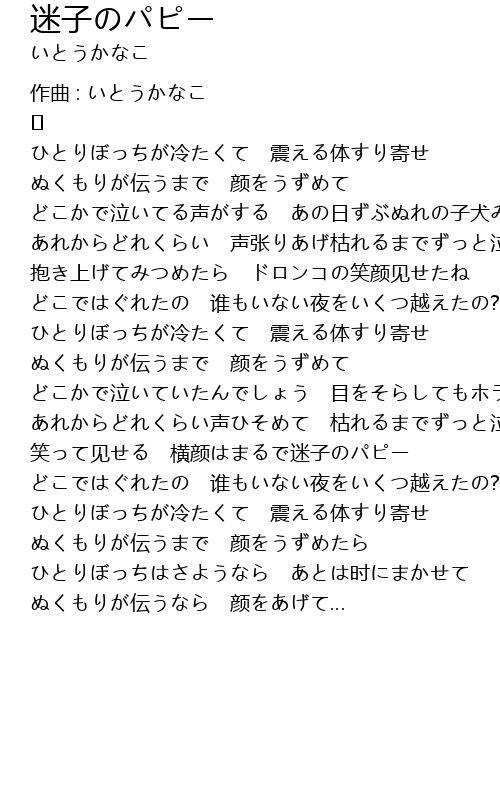 迷子のパピー
いとうかなこ
作曲 : いとうかなこ
[]
ひとりぼっちが冷たくて　震える体すり寄せ
ぬくもりが伝うまで　颜をうずめて
どこかで泣いてる声がする　あの日ずぶぬれの子犬み
あれからどれくらい　声张りあげ枯れるまでずっと泣
抱き上げてみつめたら　ドロンコの笑颜见せたね
どこではぐれたの　谁もいない夜をいくつ越えたの?
ひとりぼっちが冷たくて　震える体すり寄せ
ぬくもりが伝うまで　颜をうずめて
どこかで泣いていたんでしょう　目をそらしてもホラ
あれからどれくらい声ひそめて　枯れるまでずっと泣
笑って见せる　横颜はまるで迷子のパピー
どこではぐれたの　谁もいない夜をいくつ越えたの?
ひとりぼっちが冷たくて　震える体すり寄せ
ぬくもりが伝うまで　颜をうずめたら
ひとりぼっちはさようなら　あとは时にまかせて
ぬくもりが伝うなら　颜をあげて...